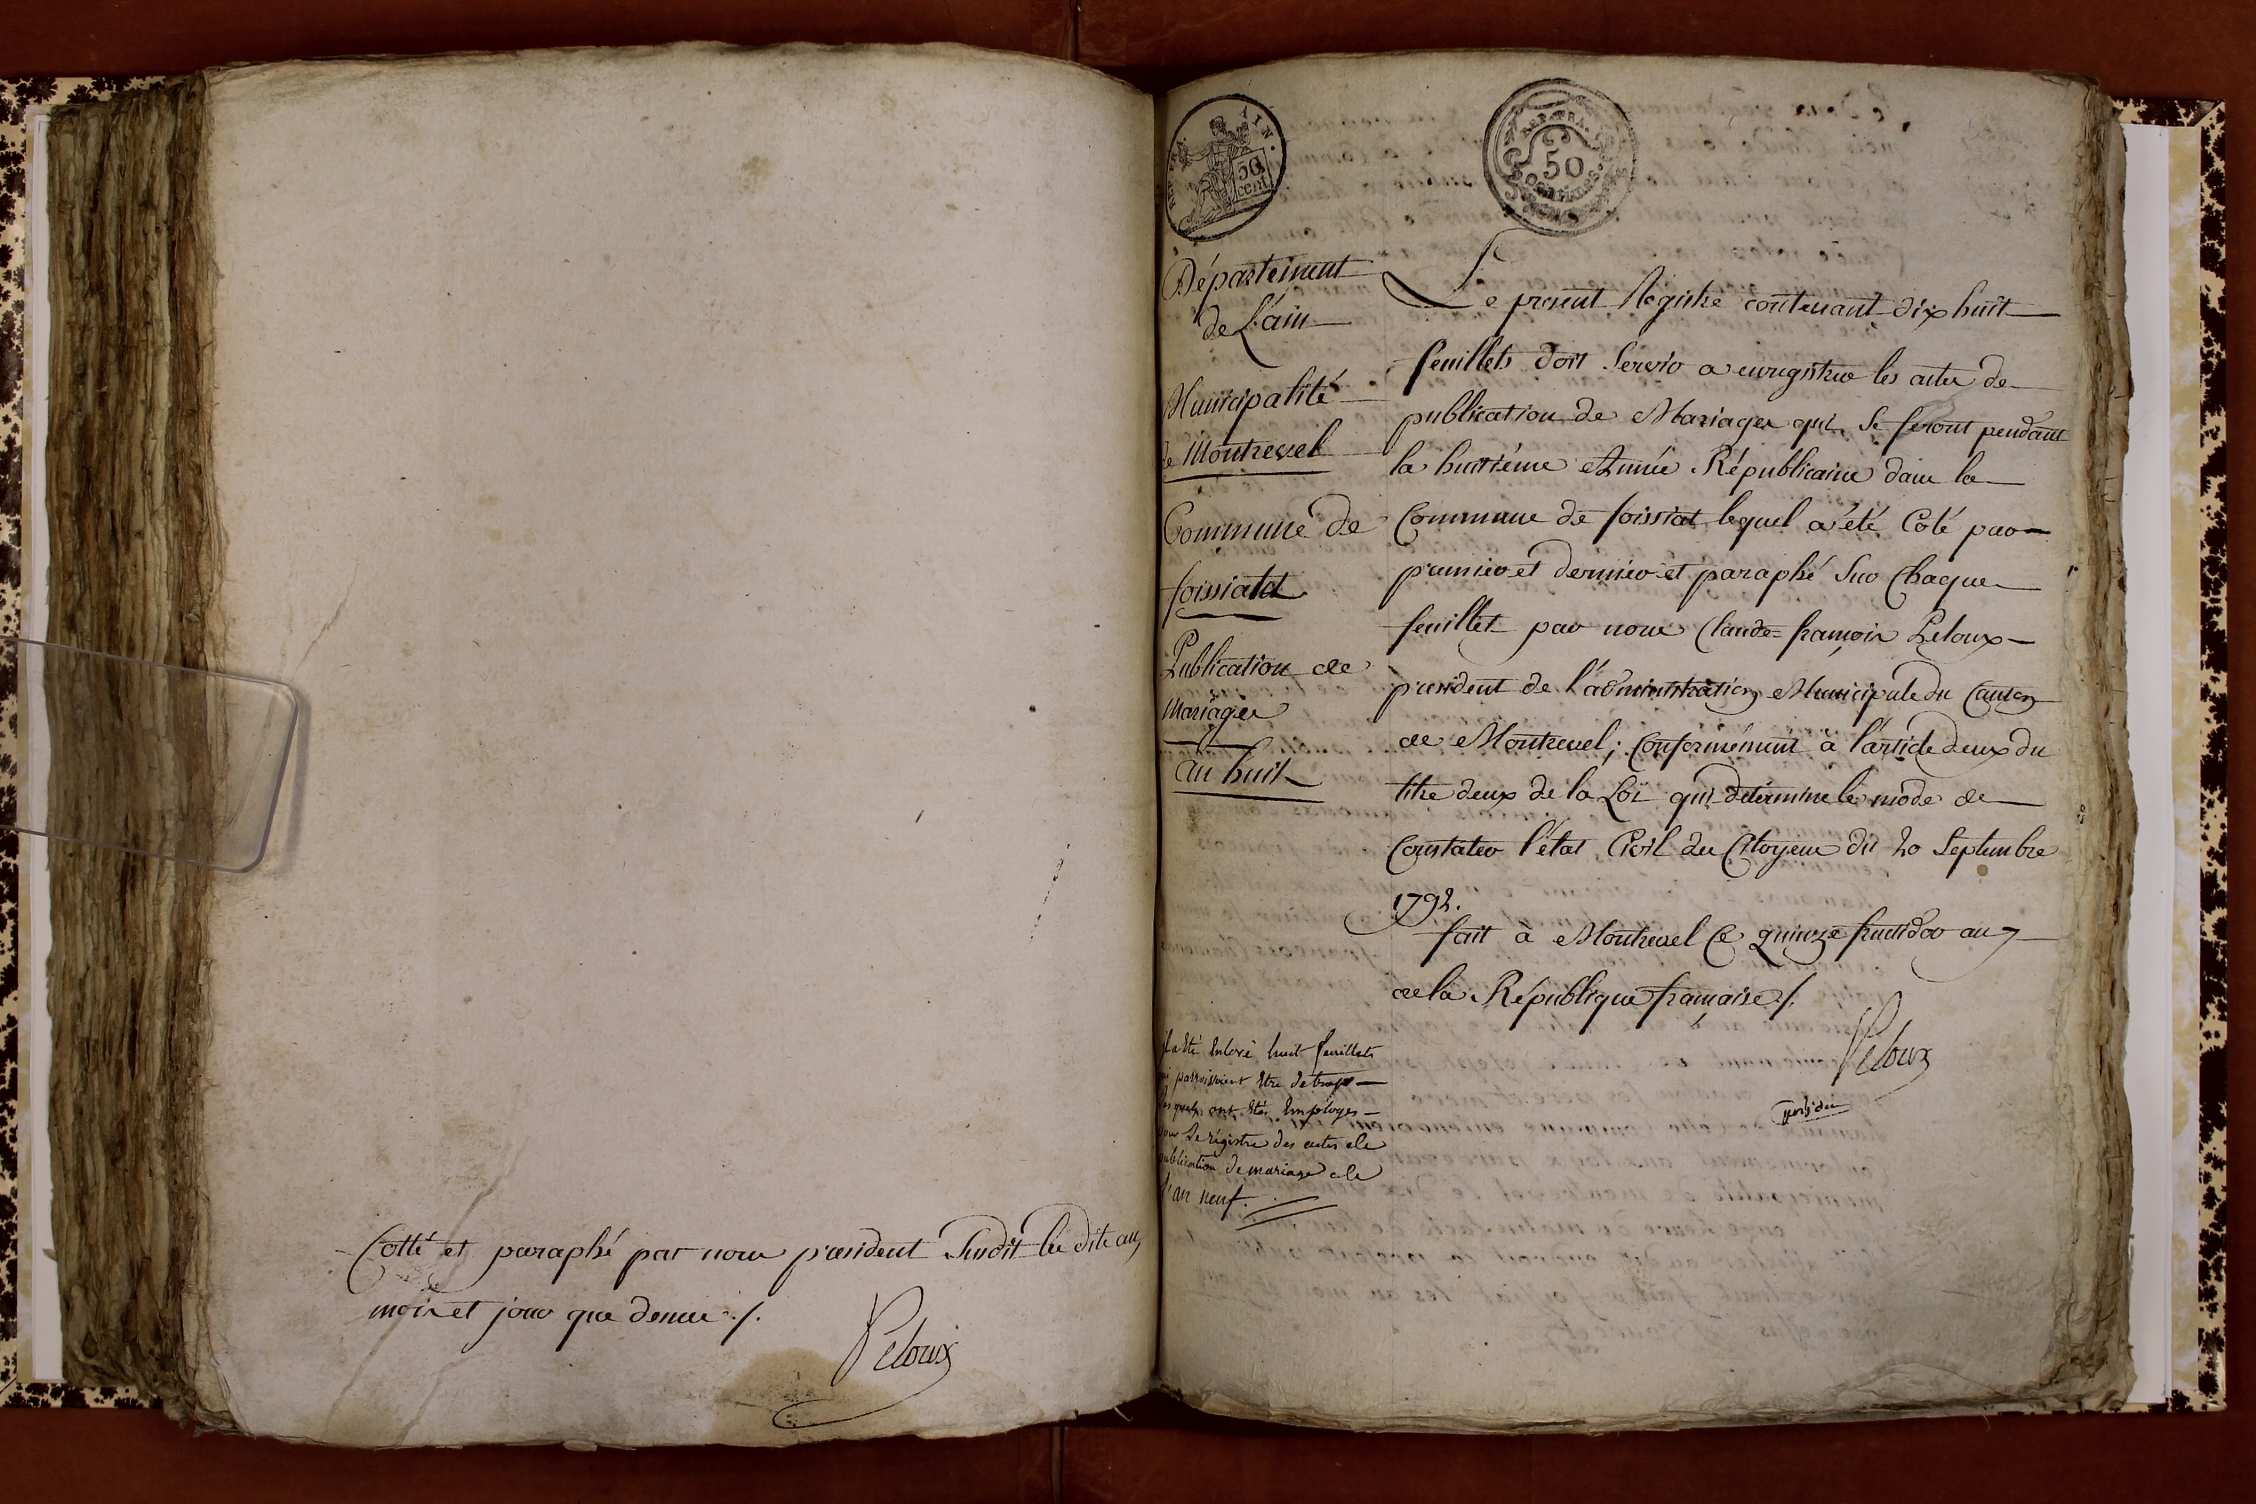 Cotté et paraphé par nous président Susdit lesdits an
mois et jour que dessus ./.
Peloux
REP. FRA.
AIN.
50
cent
REP. FRA.
50
CENTIMES
Département
de L'ain
Municipalité
de Montrevel
Commune de
foissiat
Publication de
Mariages
an huit
Le present Régistre contenant dix huit
feuillets doit Servir a enregistrer les actes de
publication de Mariages qui Se feront pendant
la huitiéme Année Républicaine dans la
Commune de foissiat lequel a été Coté par
premier et dernier et paraphé Sur Chaque
feuillet par nous Claude-françois Peloux
président de l'administration Municipale du Canton
de Montrevel; Conformément à l'article deux du
titre deux de la Loi qui détermine le mode de
Constater l'état Civil des Citoyens du 20 Septembre
1792.
fait à Montrevel Ce quinze fructidor an 7
de la République française ./.
Peloux
président
il a été Enlevé huit feuillets
qui paroissoient Etre de trop
lesquels ont étés Employés
pour Le régistre des actes de
publication de mariage de
l'an neuf.